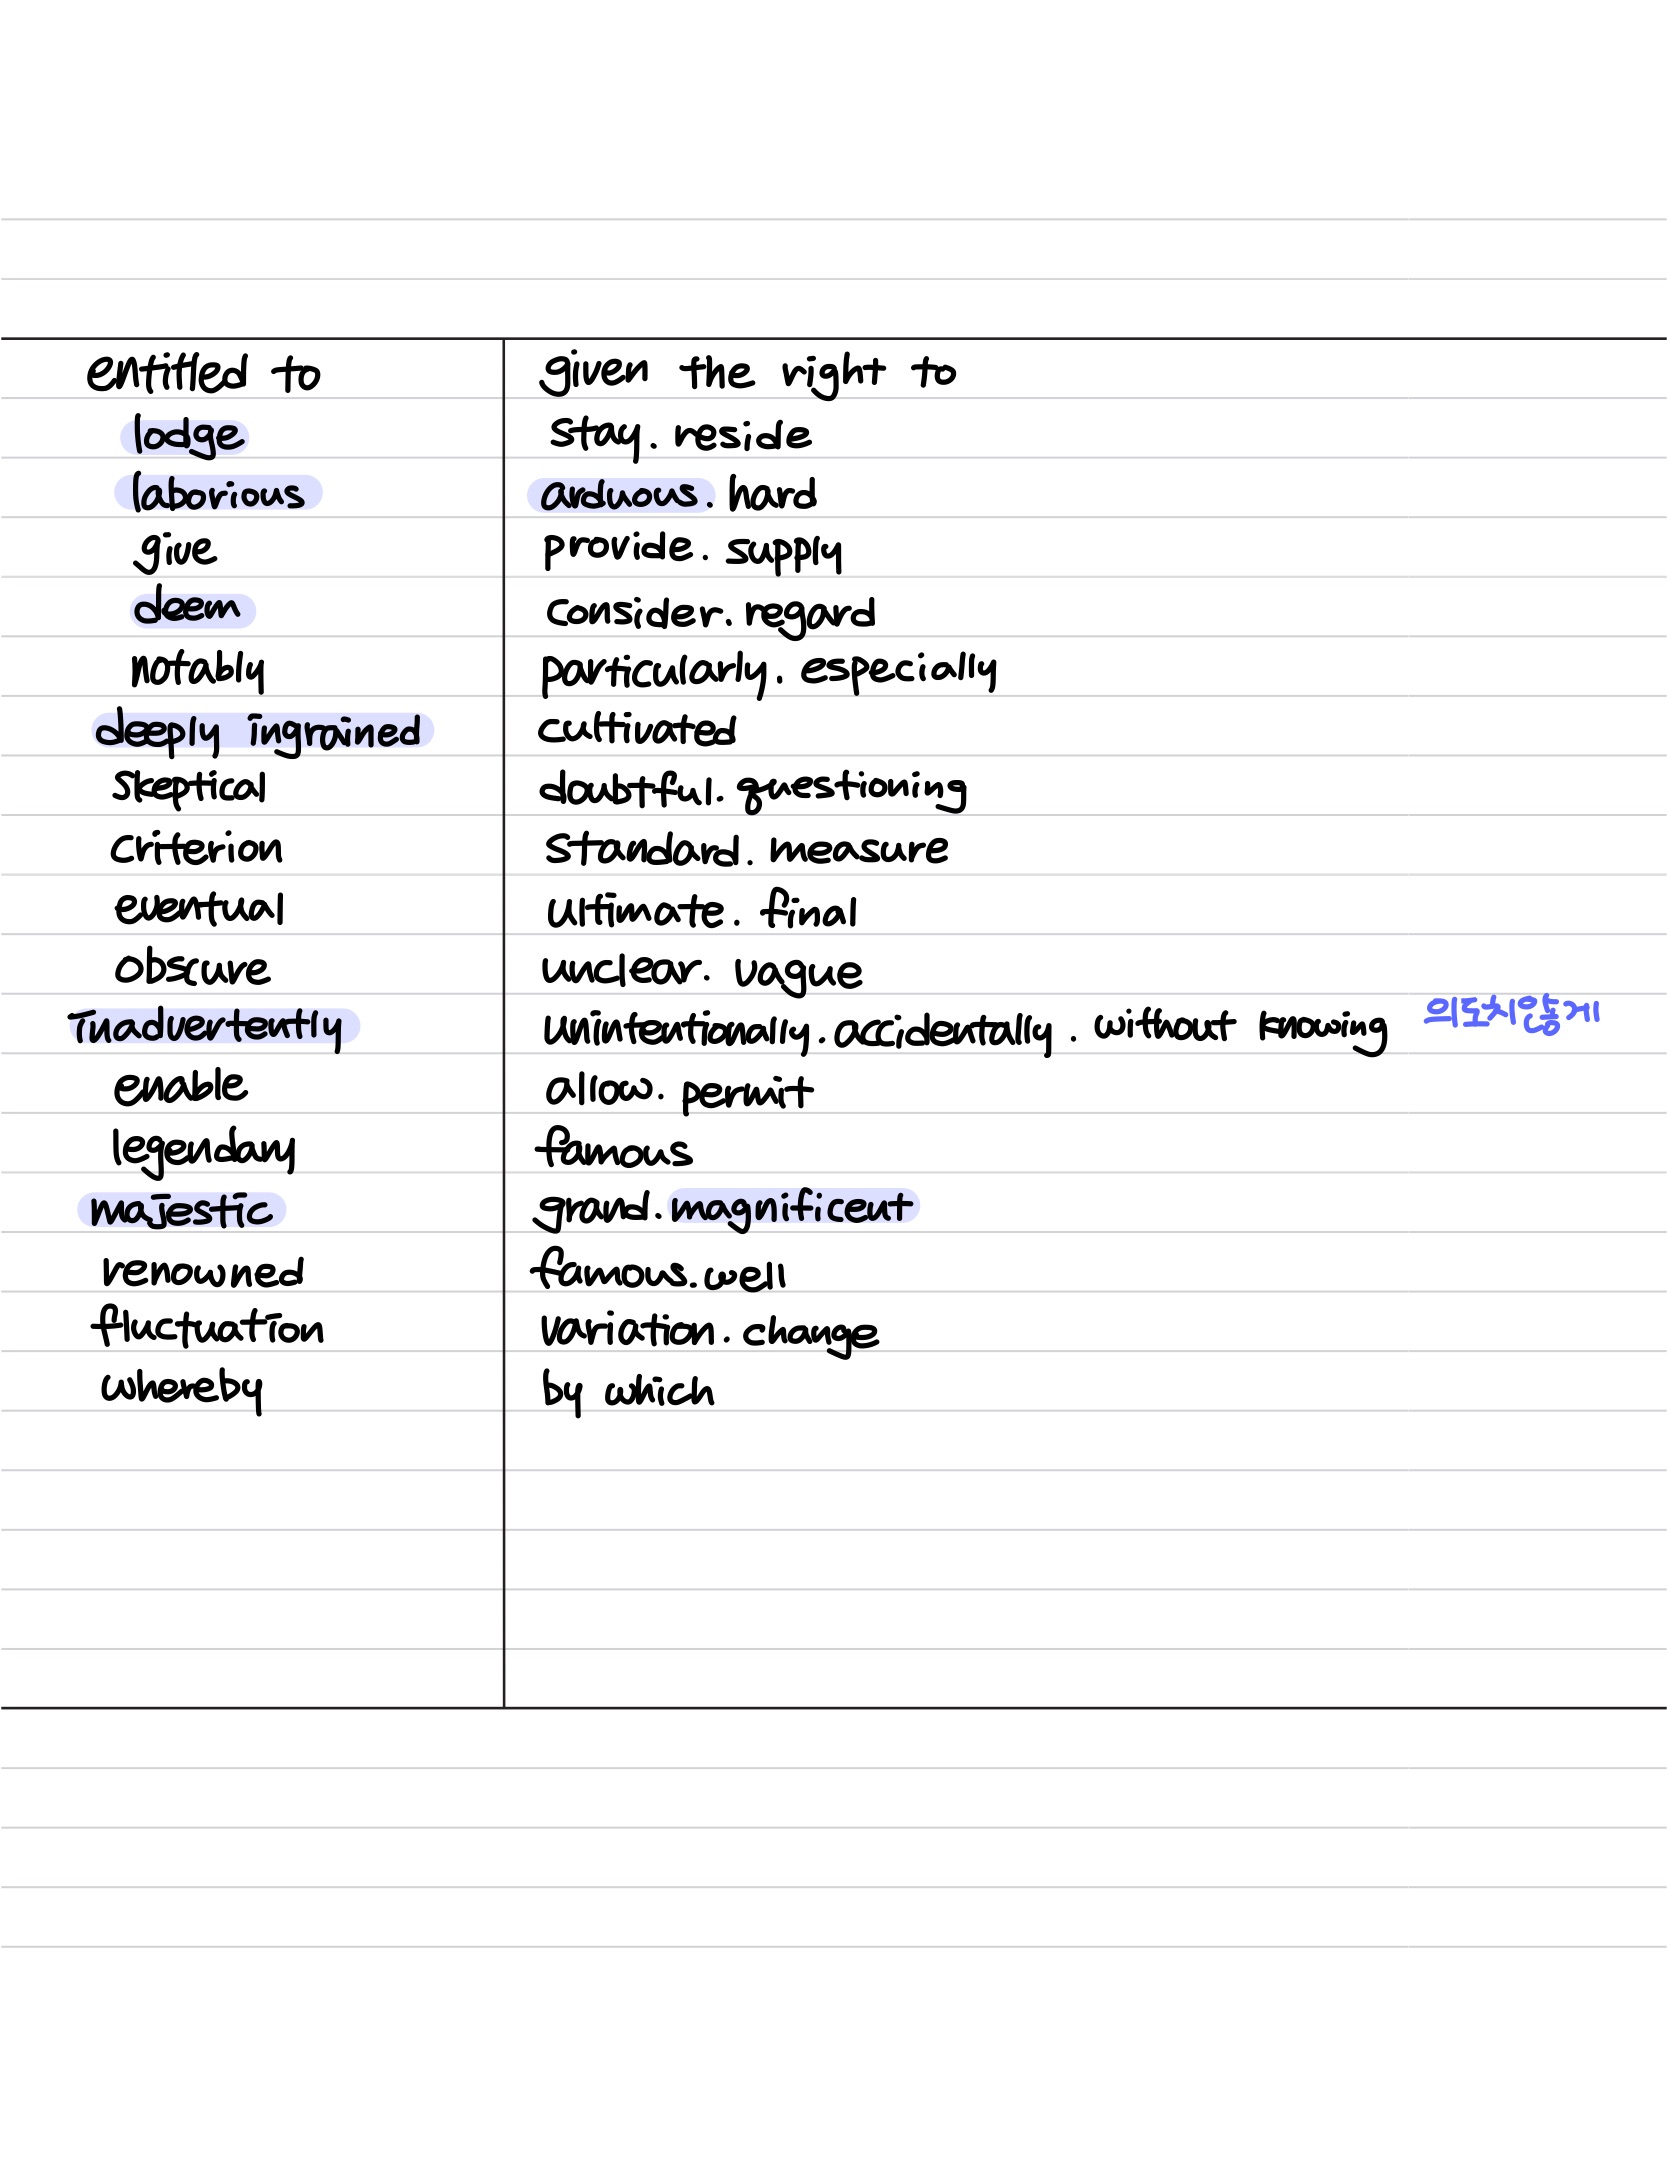 entitled to given the right to
lodge stay. reside
laborious arduous. hard
give provide. supply
deem consider. regard
notably particularly. especially
deeply ingrained cultivated
skeptical doubtful. questioning
criterion standard. measure
eventual ultimate. final
obscure unclear. vague
inadvertently unintentionally. accidentally. without knowing 의도치않게
enable allow. permit
legendary famous
majestic grand. magnificent
renowned famous. well
fluctuation variation. change
whereby by which